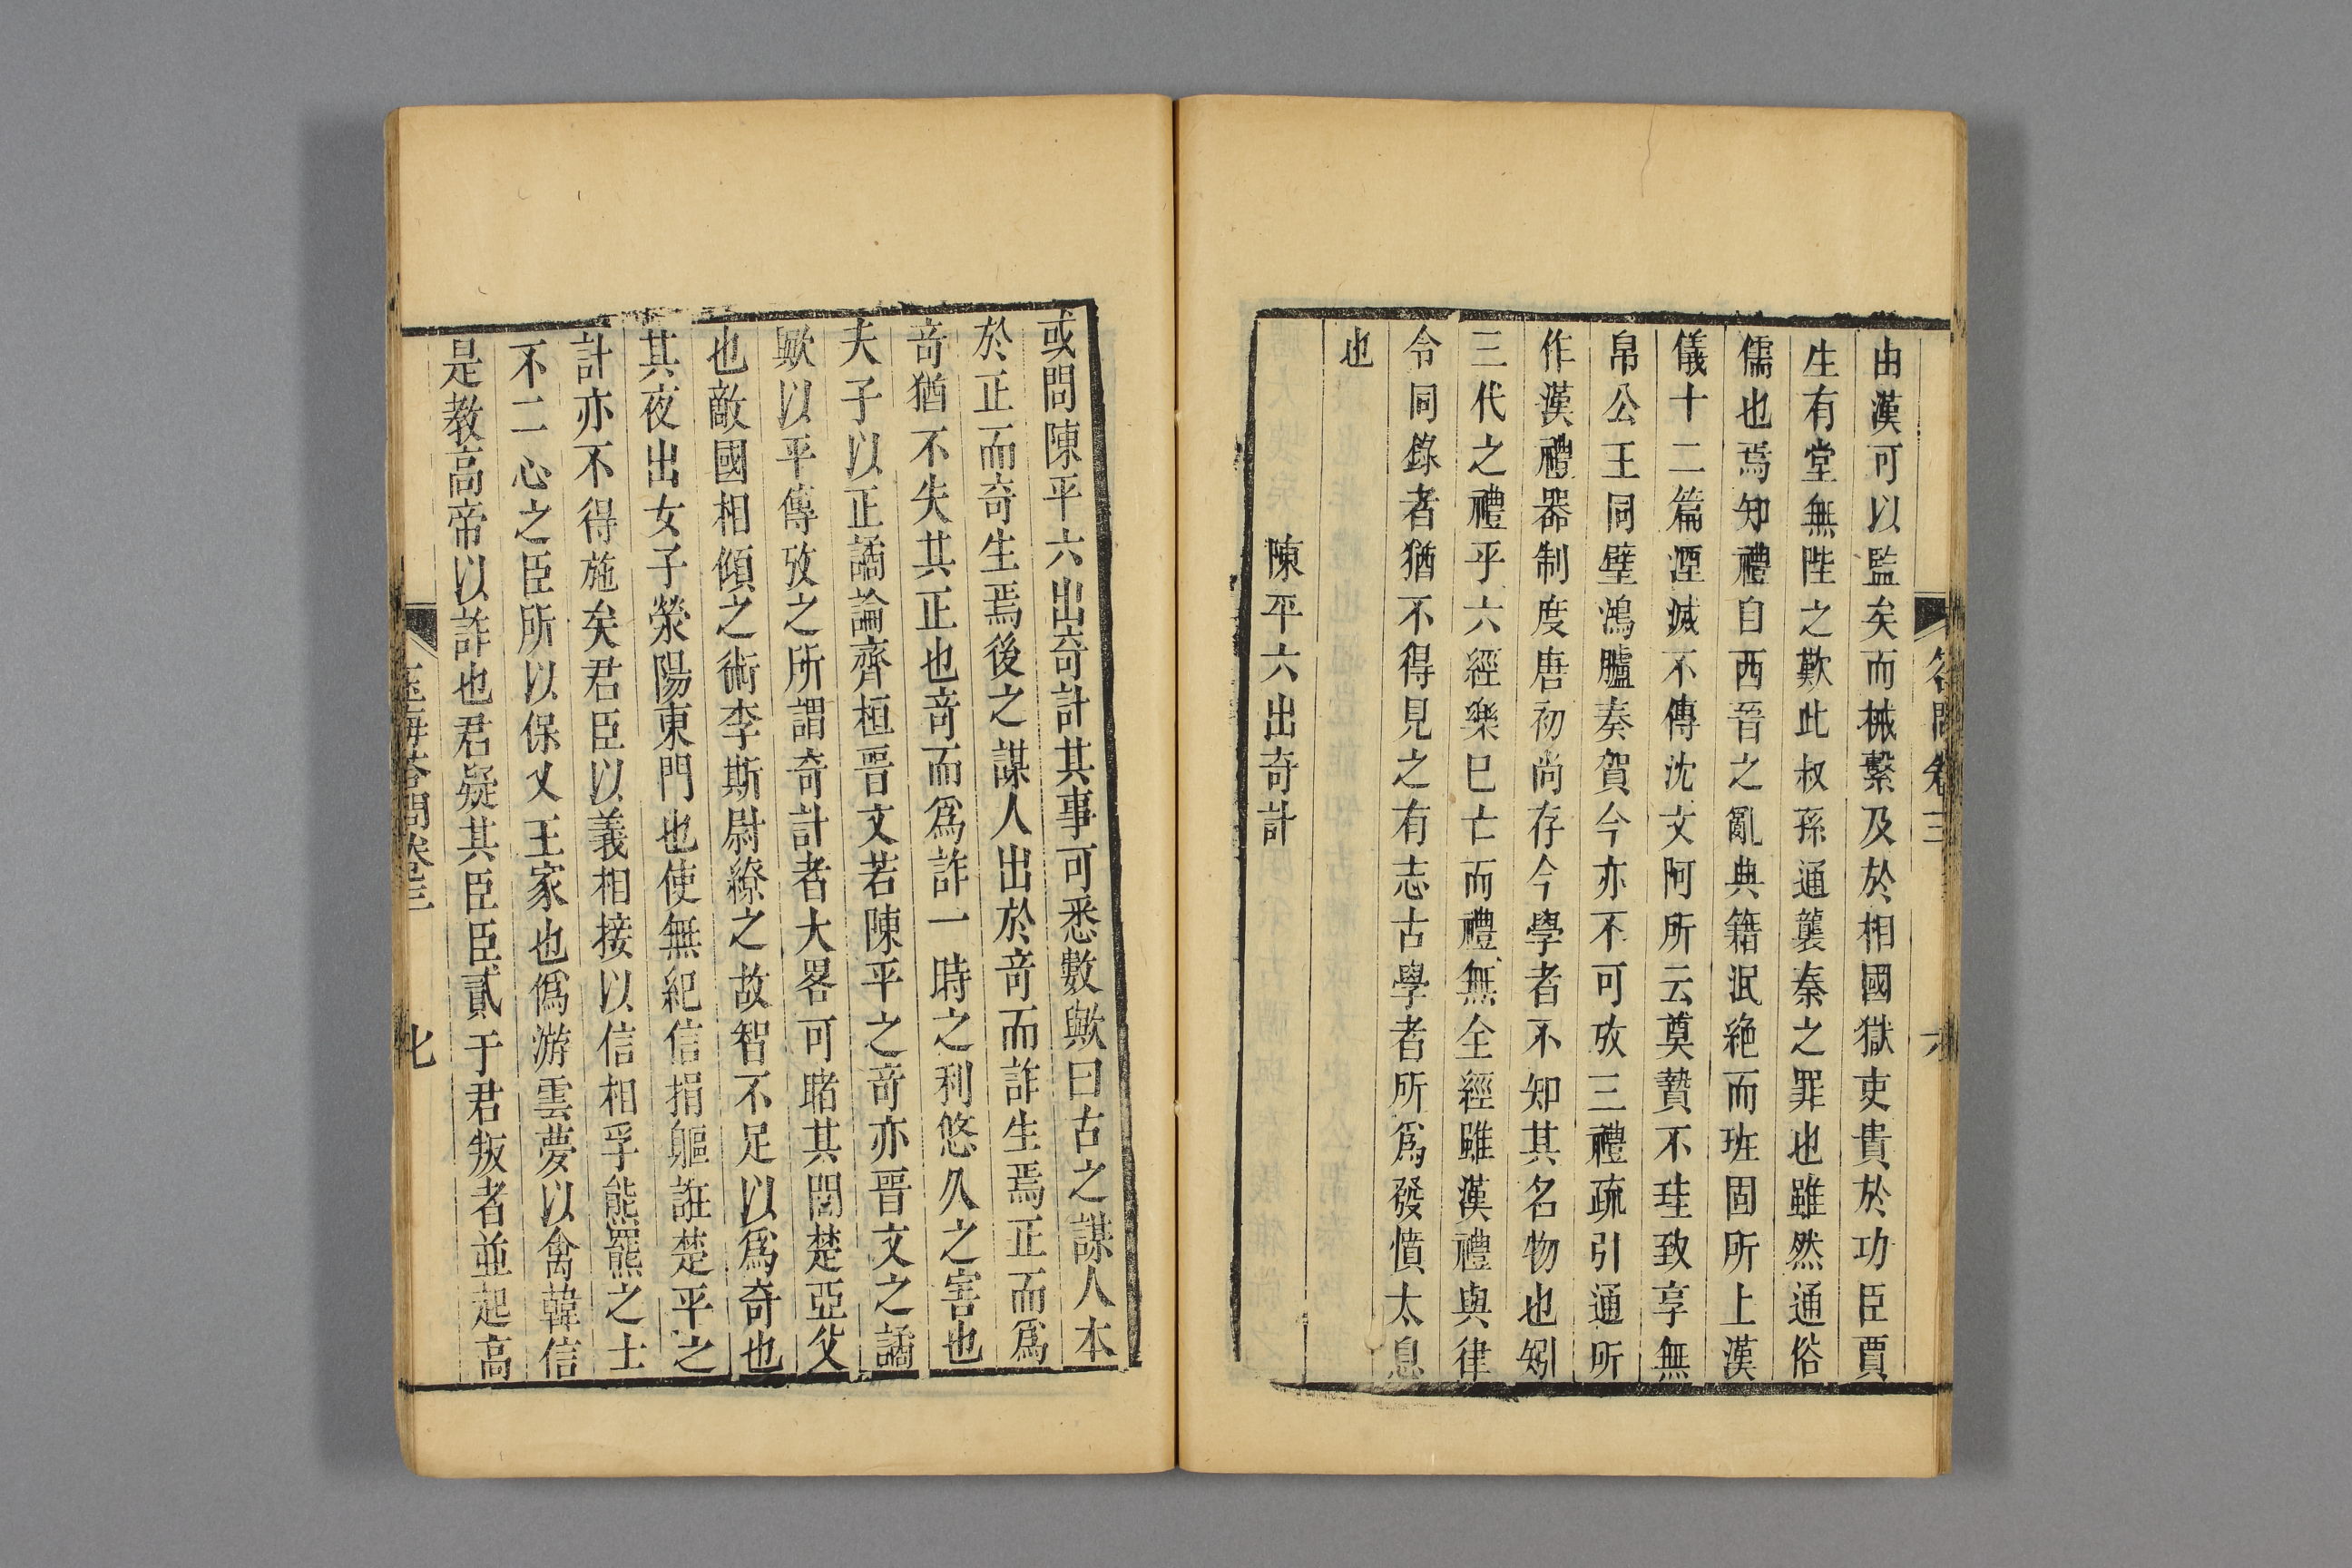 由漢可以監矣而械繫及於相國獄吏貴於功臣賈
生有堂無陛之歎此叔孫通襲秦之罪也雖然通俗
儒也焉知禮自西晉之亂典籍泯絶而班固所上漢
儀十二篇湮滅不傳沈文阿所云奠贄不珪致享無
帛公王同璧鴻臚奏賀今亦不可攷三禮疏引通所
作漢禮器制度唐初尚存今學者不知其名物也矧
三代之禮乎六經樂巳亡而禮無全經雖漢禮與律
令同錄者猶不得見之有志古學者所爲發憤太息
也
陳平六出奇計
或問陳平六出奇計其事可悉數歟曰古之謀人本
於正而奇生焉後之謀人出於奇而詐生焉正而爲
奇猶不失其正也奇而爲詐一時之利悠久之害也
夫子以正譎論齊桓晉文若陳平之奇亦晉文之譎
歟以平傳攷之所謂奇計者大畧可睹其閒楚亞父
也敵國相傾之術李斯尉繚之故智不足以爲奇也
其夜出女子滎陽東門也使無紀信捐軀誑楚平之
計亦不得施矣君臣以義相接以信相孚熊羆之士
不二心之臣所以保乂王家也僞游雲夢以禽韓信
是教高帝以詐也君疑其臣臣貳于君叛者並起高
七